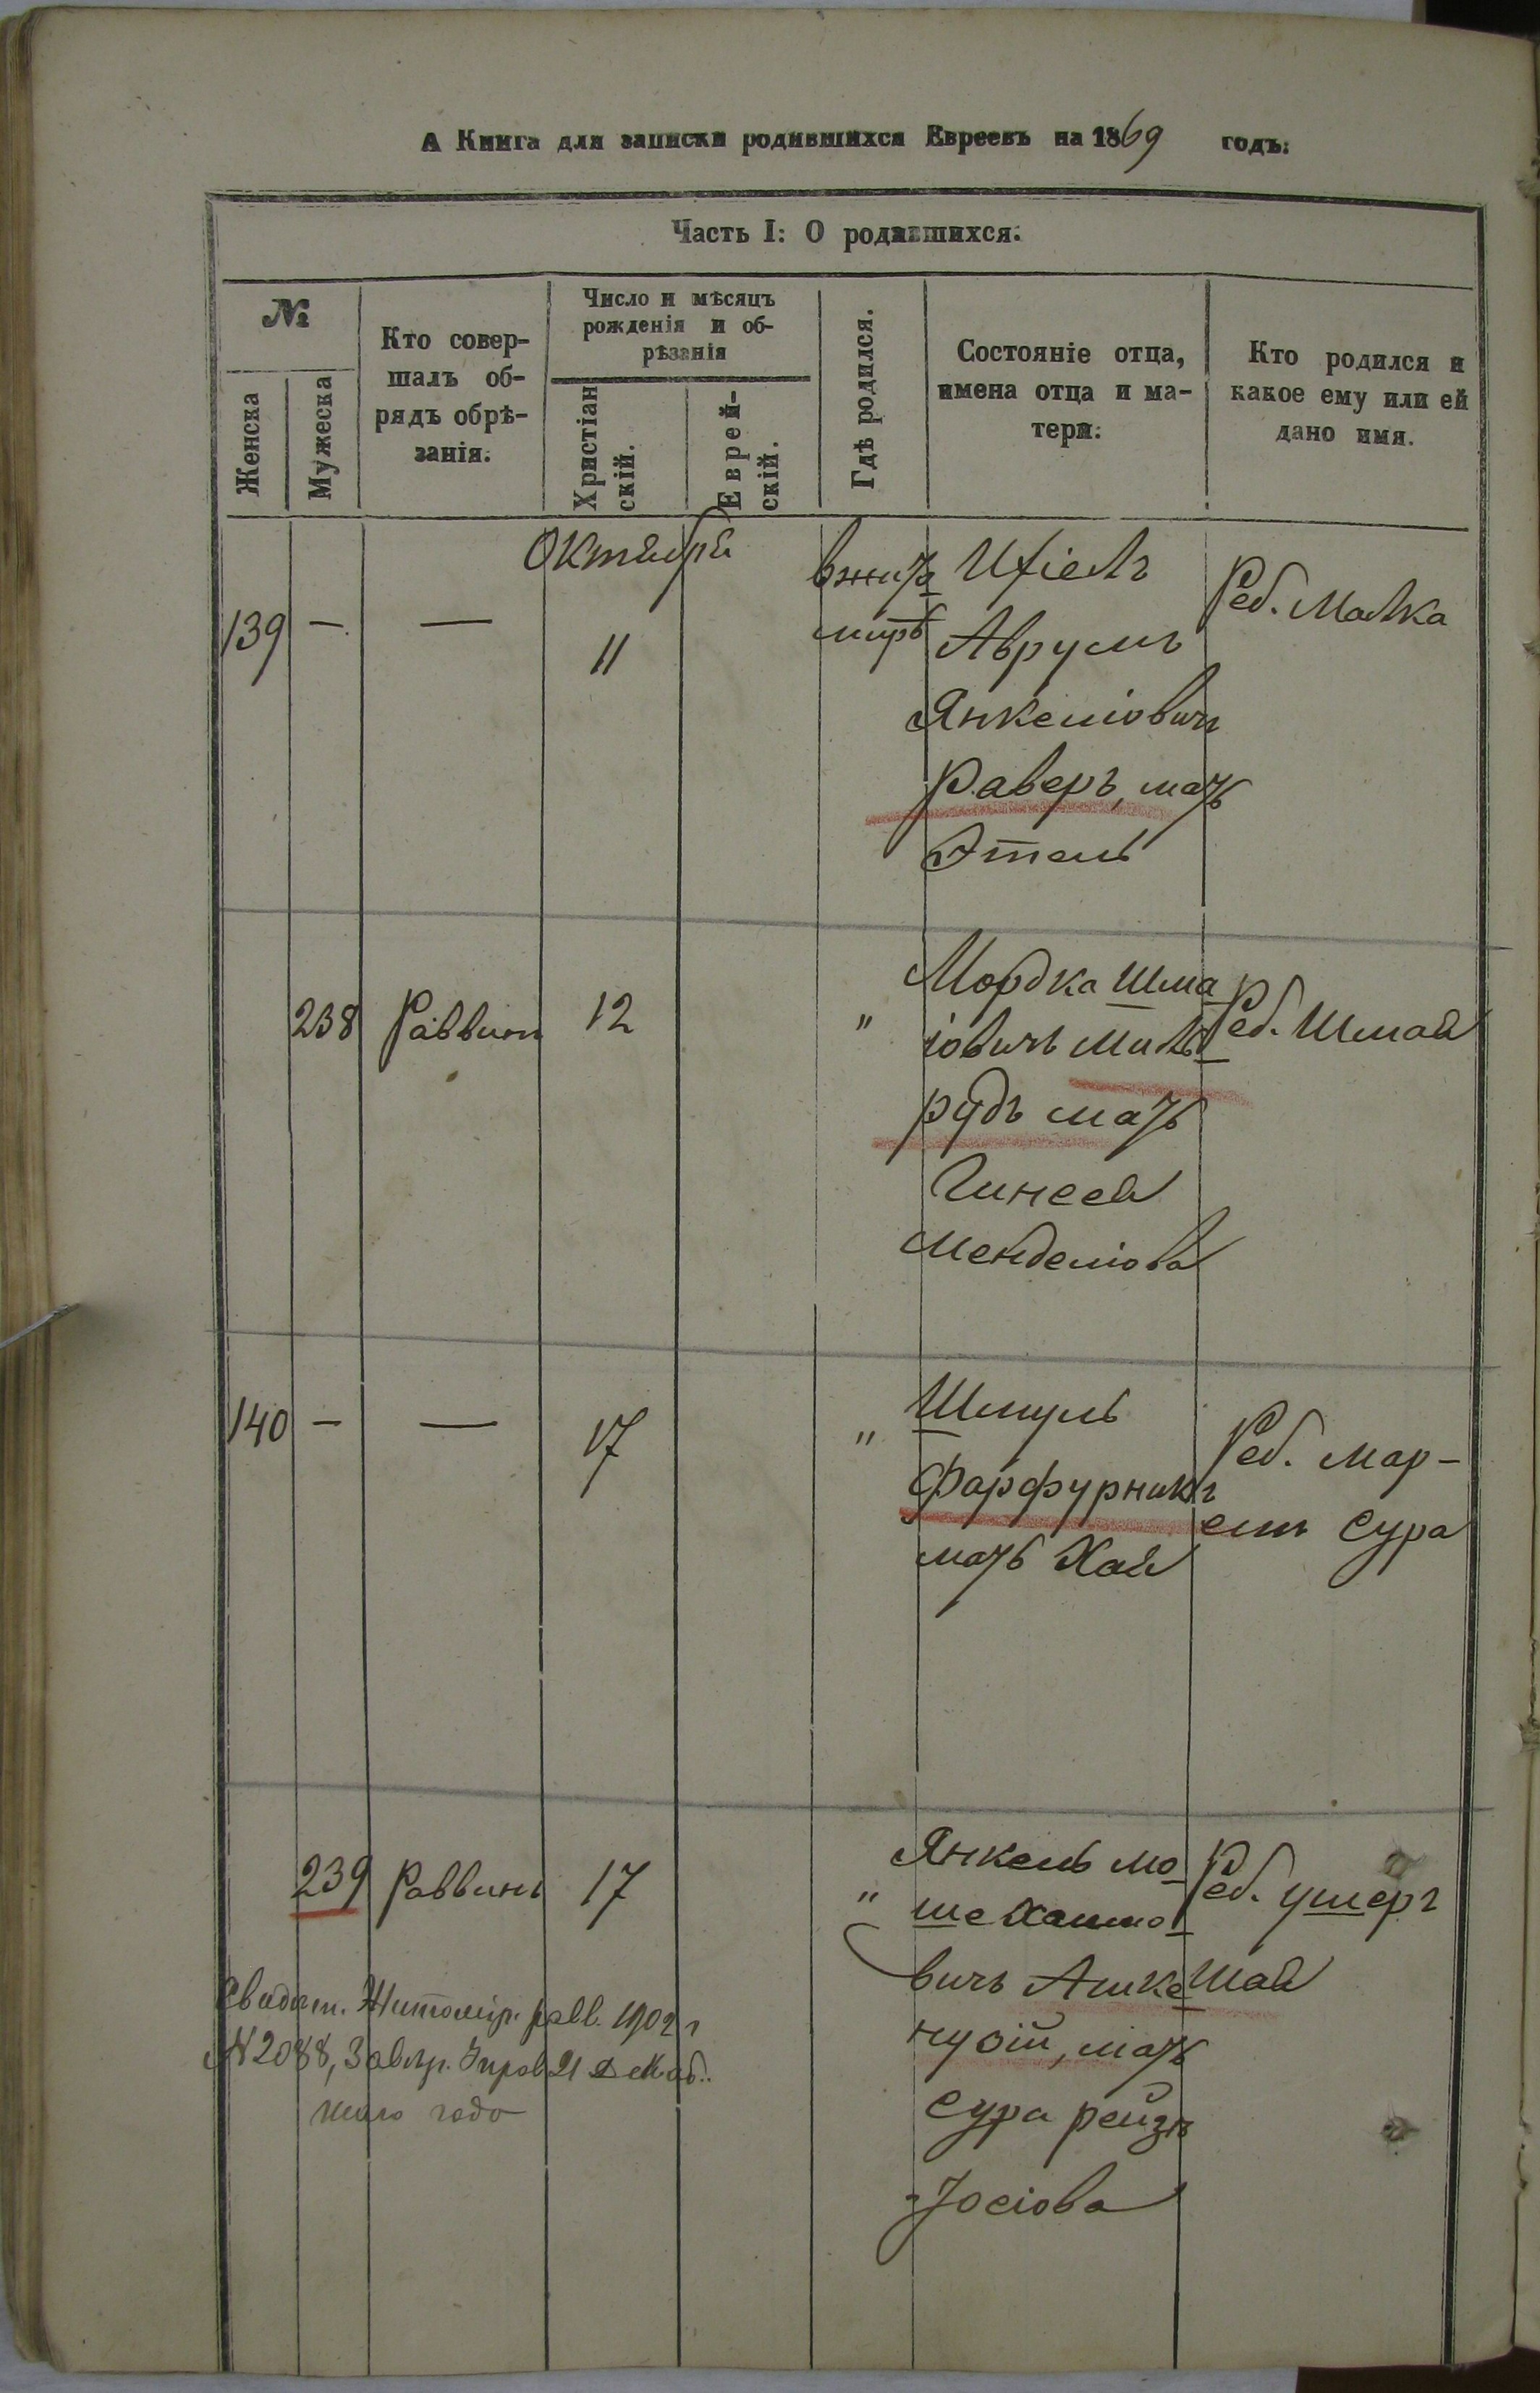 А Книга для записки родившихся Евреевъ на 1869 годъ.
Часть I: О родившихся.
№
Женска
Мужеска
Кто совер-
шалъ об-
рядъ обрѣ-
занія.
Число и мѣсяцъ
рожденія и об-
рѣзанія
Христіан
скій.
Еврей-
скій.
Гдѣ родился.
Состояніе отца,
имена отца и ма-
тери.
Кто родился и
какое ему или ей
дано имя.
Октября
139 — — 11
в жито
мирѣ
Ихіель
Аврумъ
Янкеліовичъ
Раверъ, мать
Этель
Реб. Малка
238 Раввинъ 12 "
Мордка Шма
іовичъ Миль
рудъ мать
Гинеся
Менделіова
Реб. Шмая
140 — — 17 "
Шмуль
Фарфурникъ
мать Хая
Реб. Мар-
емъ Сура
239 Раввинъ 17 "
Янкель Мо
ше Хаимо
вичъ Ашке
нузій, мать
Сура Рейзя
Іосіова
Реб. Ушеръ
Шая
Свидѣт. Житомір. равв. 1902 г
№ 2088, 21 Декаб.
того года